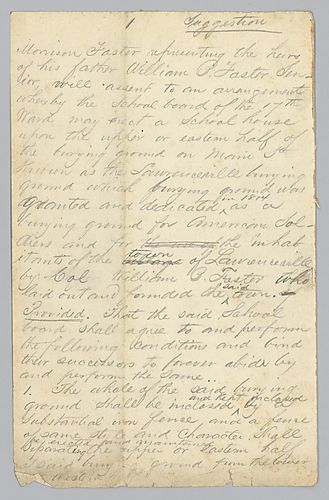 1
Suggestion
Morrison Foster representing the heirs
of his father William B. Foster Sen-
ior, will assent to an arrangement
whereby the School board of the 17th
Ward may erect a School house
upon the upper or eastern half of
the burying ground on Main St
Known as the Lawrenceville burying
ground which burying ground was
in 1814
granted and dedicated, as a
burying ground for American Sol-
diers and for the inhab
itants of the town of Lawrenceville
by Col William B. Foster who
laid out and founded the said town.
Provided. That the said School
board shall agree to and perform
the following conditions and bind
their successors to forever abide by
and perform the same.
1. The whole of the said burying
and kept enclosed
ground shall be inclosed by a
substantial iron fence, and a fence
of same style and character shall
be erected and maintained
separating the upper or eastern half
of said burying ground from the lower
western